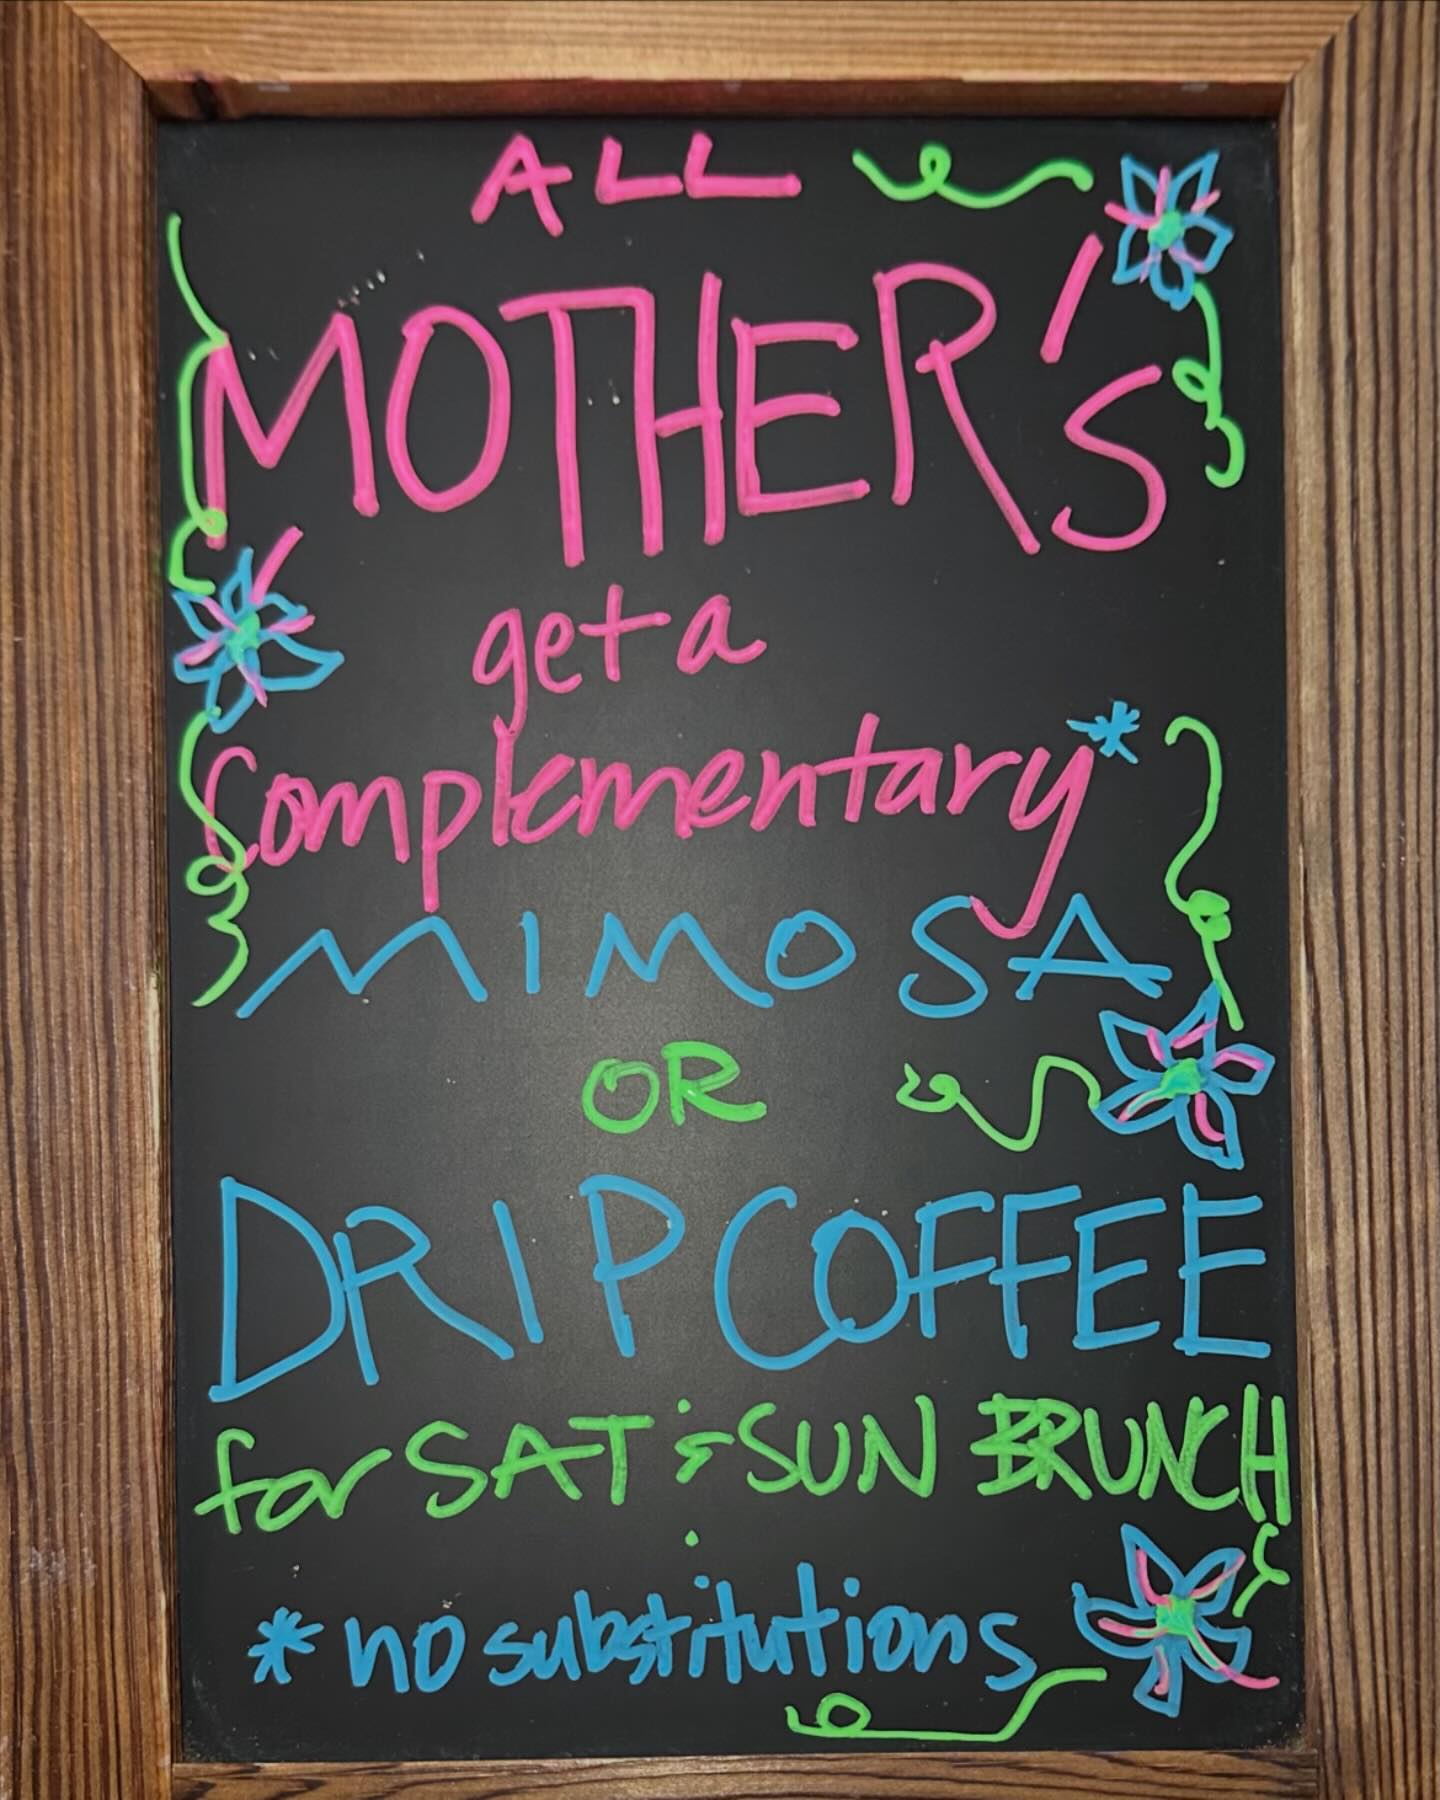 ALL
MOTHER's
get a
Complementary*
MIMOSA
OR
DRIP COFFEE
for SAT & SUN BRUNCH
* no substitutions